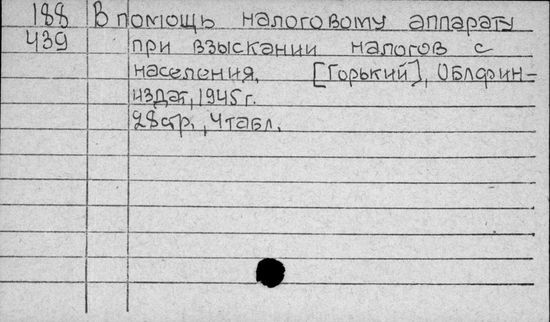 188 В помощь налоговому аппарату
439 при взыскании налогов с
населения. [Горький], Облфин-
издат, 1945 г.
28 стр., 4 табл.